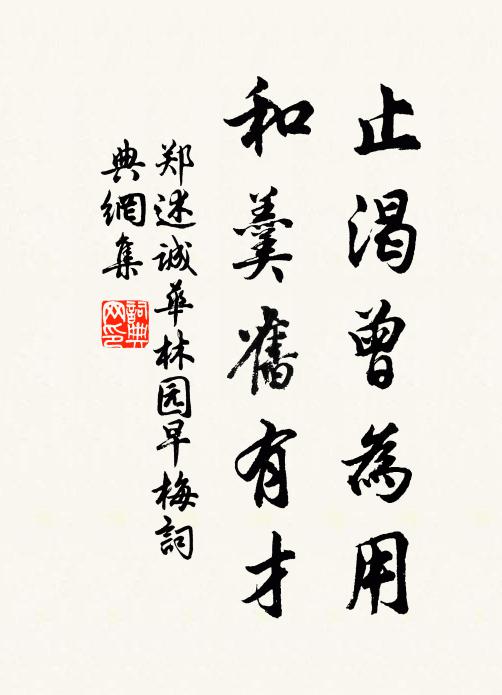 止渴曾為用
和羹舊有才
郑述诚华林园早梅詞
典網集
詞典
网印